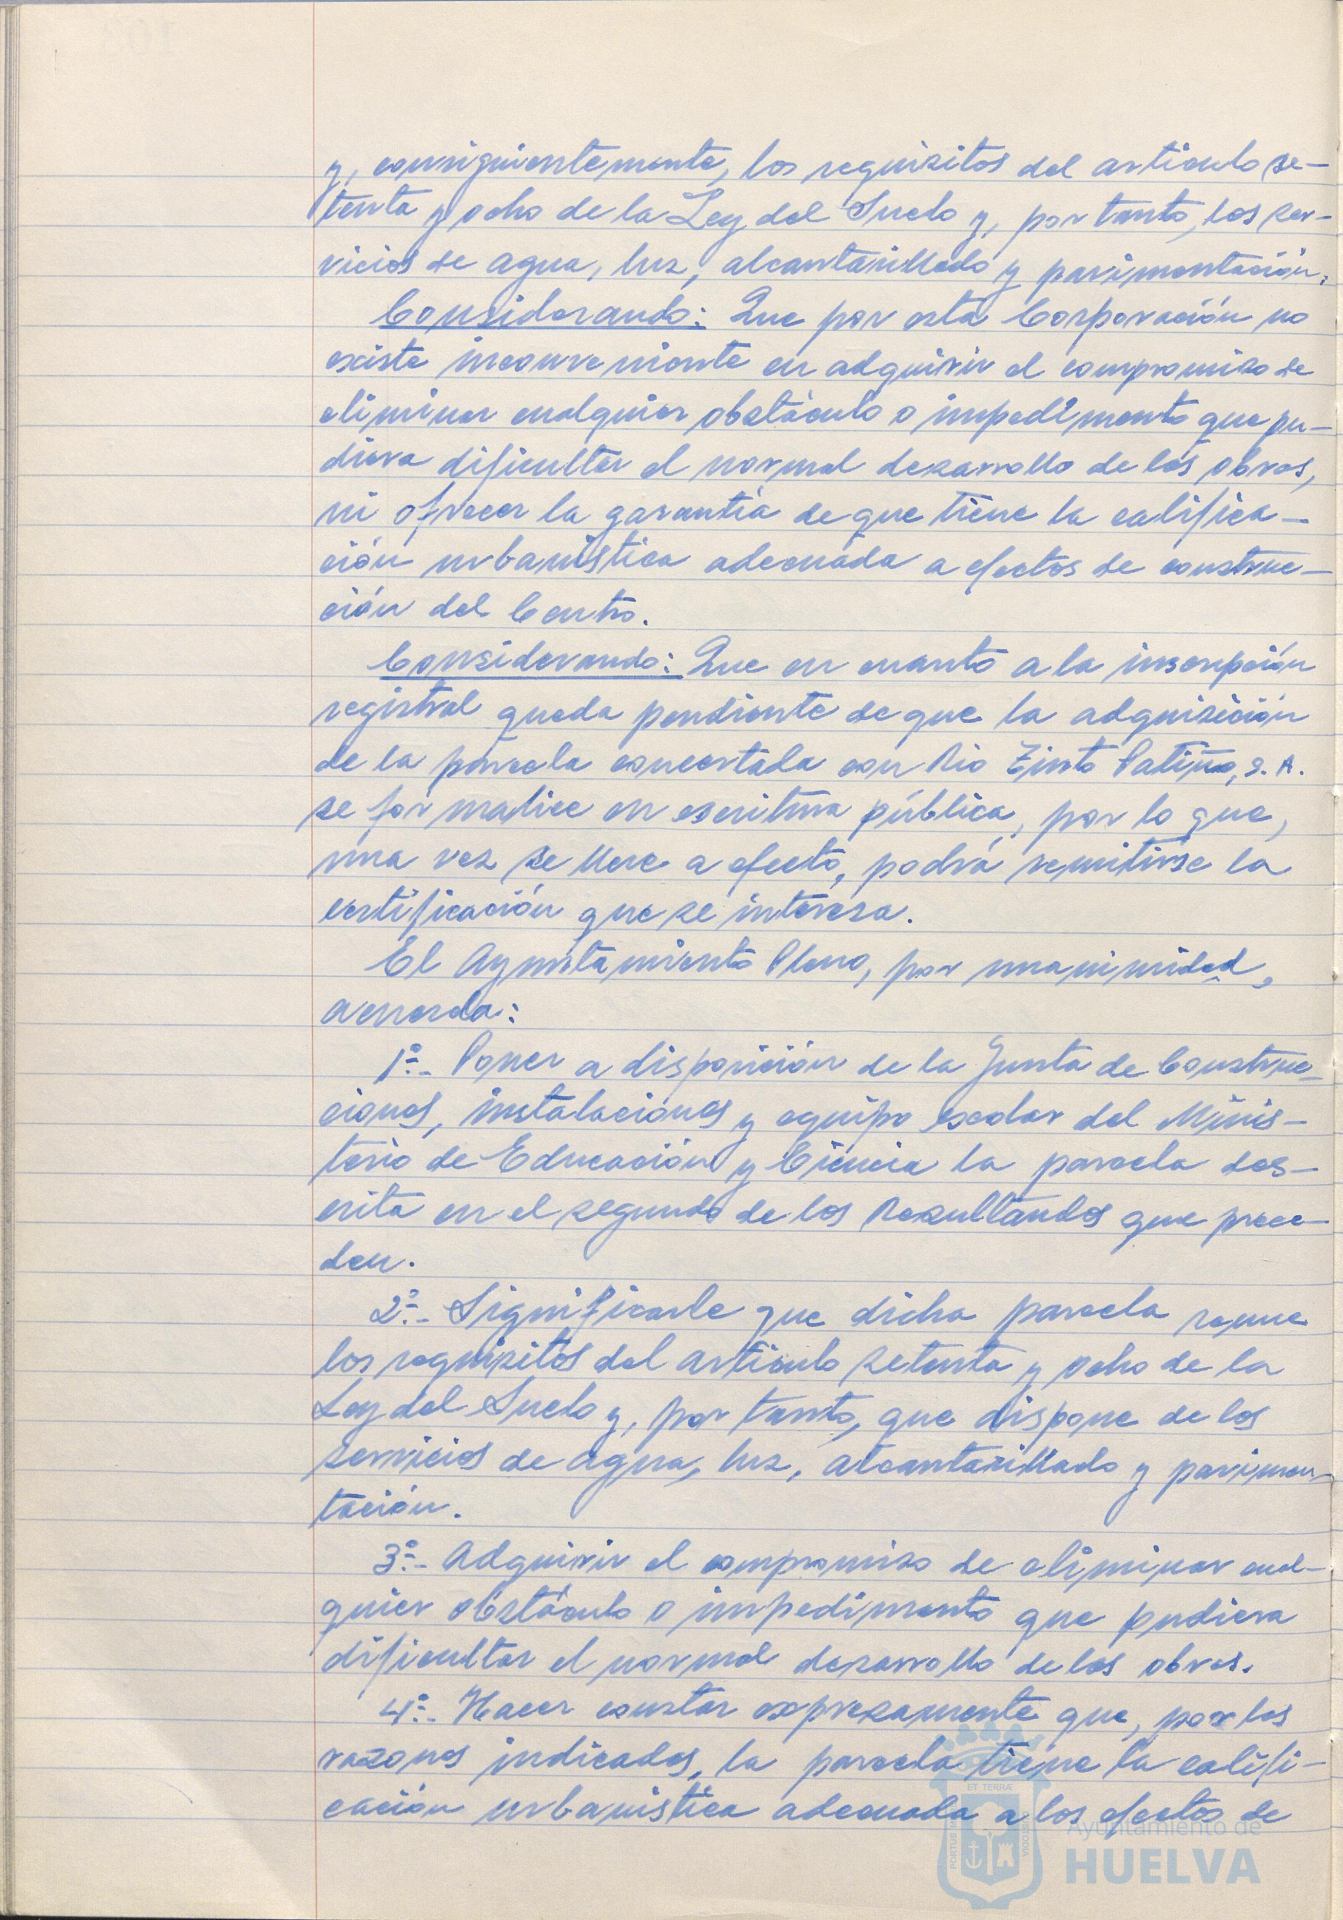 y, consiguientemente, los requisitos del artículo se-
tenta y ocho de la Ley del Suelo y, por tanto, los ser-
vicios de agua, luz, alcantarillado y pavimentación.
Considerando: Que por esta Corporación no
existe inconveniente en adquirir el compromiso de
eliminar cualquier obstáculo o impedimento que pu-
diera dificultar el normal desarrollo de las obras,
ni ofrecer la garantía de que tiene la califica-
ción urbanística adecuada a efectos de construc-
ción del Centro.
Considerando: Que en cuanto a la inscripción
registral queda pendiente de que la adquisición
de la parcela concertada con Rio Tinto Patiño, S. A.
se formalice en escritura pública, por lo que,
una vez se lleve a efecto, podrá remitirse la
certificación que se interesa.
El Ayuntamiento Pleno, por unanimidad,
acuerda:
1º.- Poner a disposición de la Junta de Construc-
ciones, instalaciones y equipo escolar del Minis-
terio de Educación y Ciencia la parcela des-
crita en el segundo de los Resultandos que prece-
den.
2º.- Significarle que dicha parcela reune
los requisitos del artículo setenta y ocho de la
Ley del Suelo y, por tanto, que dispone de los
servicios de agua, luz, alcantarillado y pavimen-
tación.
3º.- Adquirir el compromiso de eliminar cual-
quier obstáculo o impedimento que pudiera
dificultar el normal desarrollo de las obras.
4º.- Hacer constar expresamente que, por las
razones indicadas, la parcela tiene la califi-
cación urbanística adecuada a los efectos de
ET TERRÆ
Ayuntamiento de
HUELVA